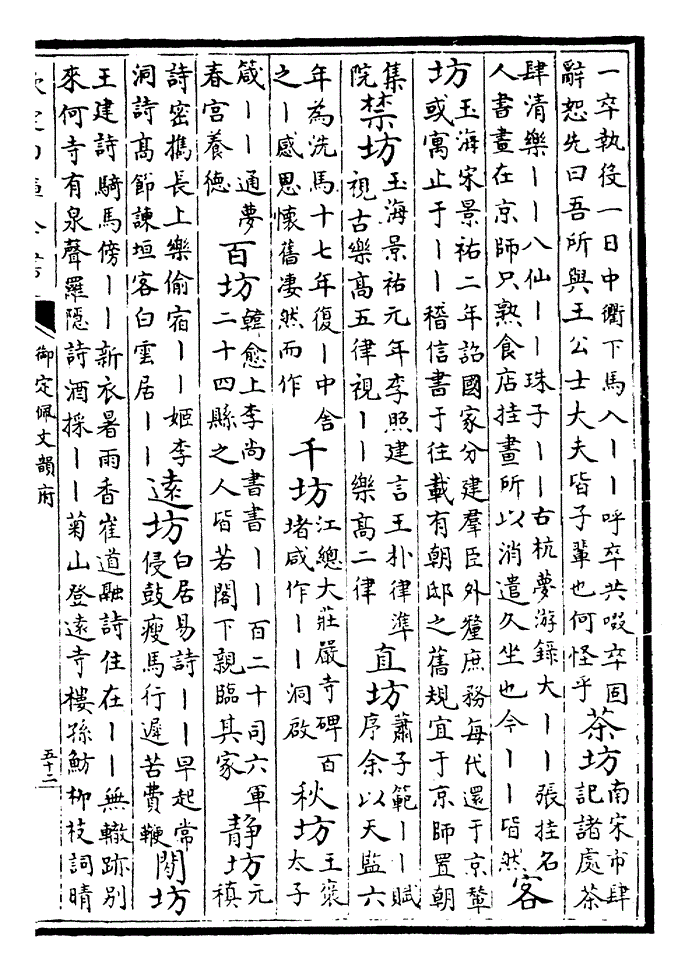 一卒執役一日中衢下馬入丨丨呼卒共啜卒固
辭恕先曰吾所與王公士大夫皆子輩也何怪乎
茶坊
南宋市肆
記諸處茶
肆清樂丨丨八仙丨丨珠子丨丨古杭夢游録大丨丨張挂名
人書畫在京師只熟食店挂畫所以消遣久坐也今丨丨皆然
客
坊
玉海宋景祐二年詔國家分建羣臣外釐庶務每代還于京輦
或寓止于丨丨稽信書于往載有朝邸之舊規宜于京師置朝
集
院
禁坊
玉海景祐元年李照建言王朴律準
視古樂高五律視丨丨樂高二律
直坊
蕭子範丨丨賦
序余以天監六
年為洗馬十七年復丨中舍
之丨感思懷舊凄然而作
千坊
江總大莊嚴寺碑百
堵咸作丨丨洞啟
秋坊
王襃
太子
箴丨丨通夢
春宫養德
百坊
韓愈上李尚書書丨丨百二十司六軍
二十四縣之人皆若閣下親臨其家
静坊
元
稹
詩密攜長上樂偷宿丨丨姬李
洞詩高節諫垣客白雲居丨丨
遠坊
白居易詩丨丨早起常
侵鼓瘦馬行遲苦費鞭
閒坊
王建詩騎馬傍丨丨新衣暑雨香崔道融詩住在丨丨無轍跡别
來何寺有泉聲羅隱詩酒採丨丨菊山登遠寺樓孫魴柳枝詞晴
欽定四庫全書
御定佩文韻府
五十二